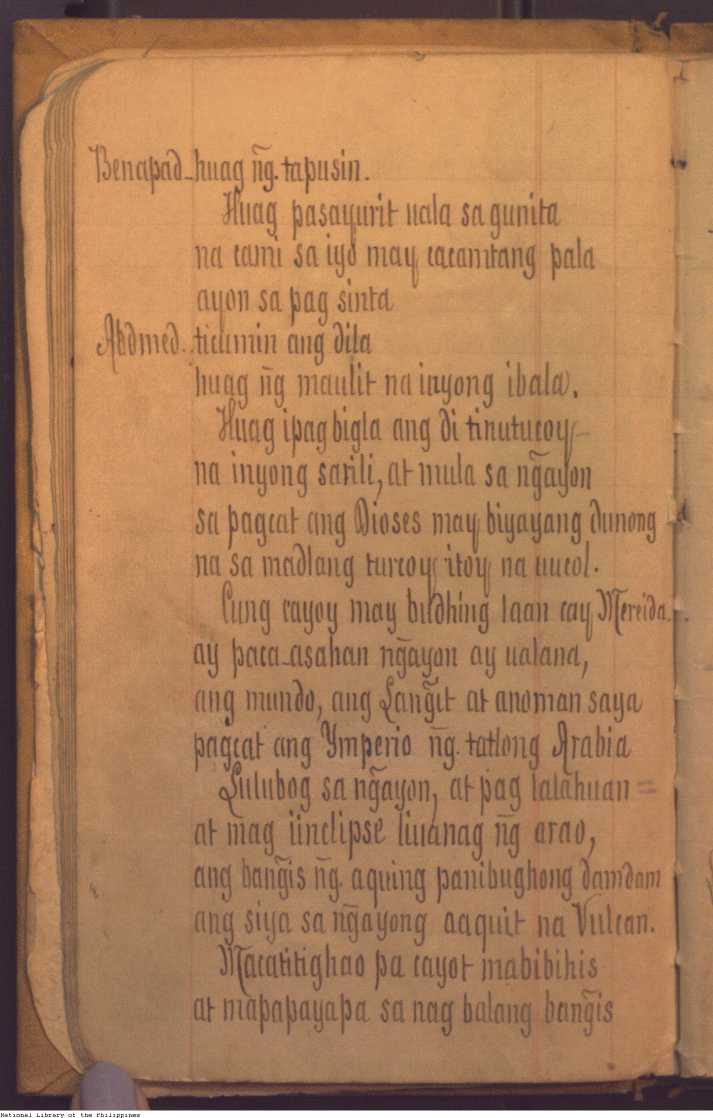 Benapad - huag n͠g. tapusin.
Huag pasayurit uala sa gunita
na cami sa iyo may cacamtang pala
ayon sa pag sinta
Abdmed. ticumin ang dila
huag n͠g maulit na inyong ibala.
Huag ipag bigla ang di tinutucoy -
na inyong sarili, at mula sa n͠gayon
sa pagcat ang Dioses may biyayang dunong
na sa madlang turcoy itoy na uucol.
Cung cayoy may budhing laan cay Mereida..
ay paca-asahan n͠gayon ay ualand,
ang mundo, ang Lan͠git at anoman saya
pagcat ang Ymperio n͠g. tatlong Arabia
Lulubog sa n͠gayon, at pag lalahuan =
at mag iinclipse liuanag n͠g arao,
ang ban͠gis n͠g. aquing panibughong damdam
ang siya sa n͠gayong aaquit na Vulcan.
Macatitighao pa cayot mabibihis
at mapapayapa sa nag balang ban͠gis
National Library of the Philippines